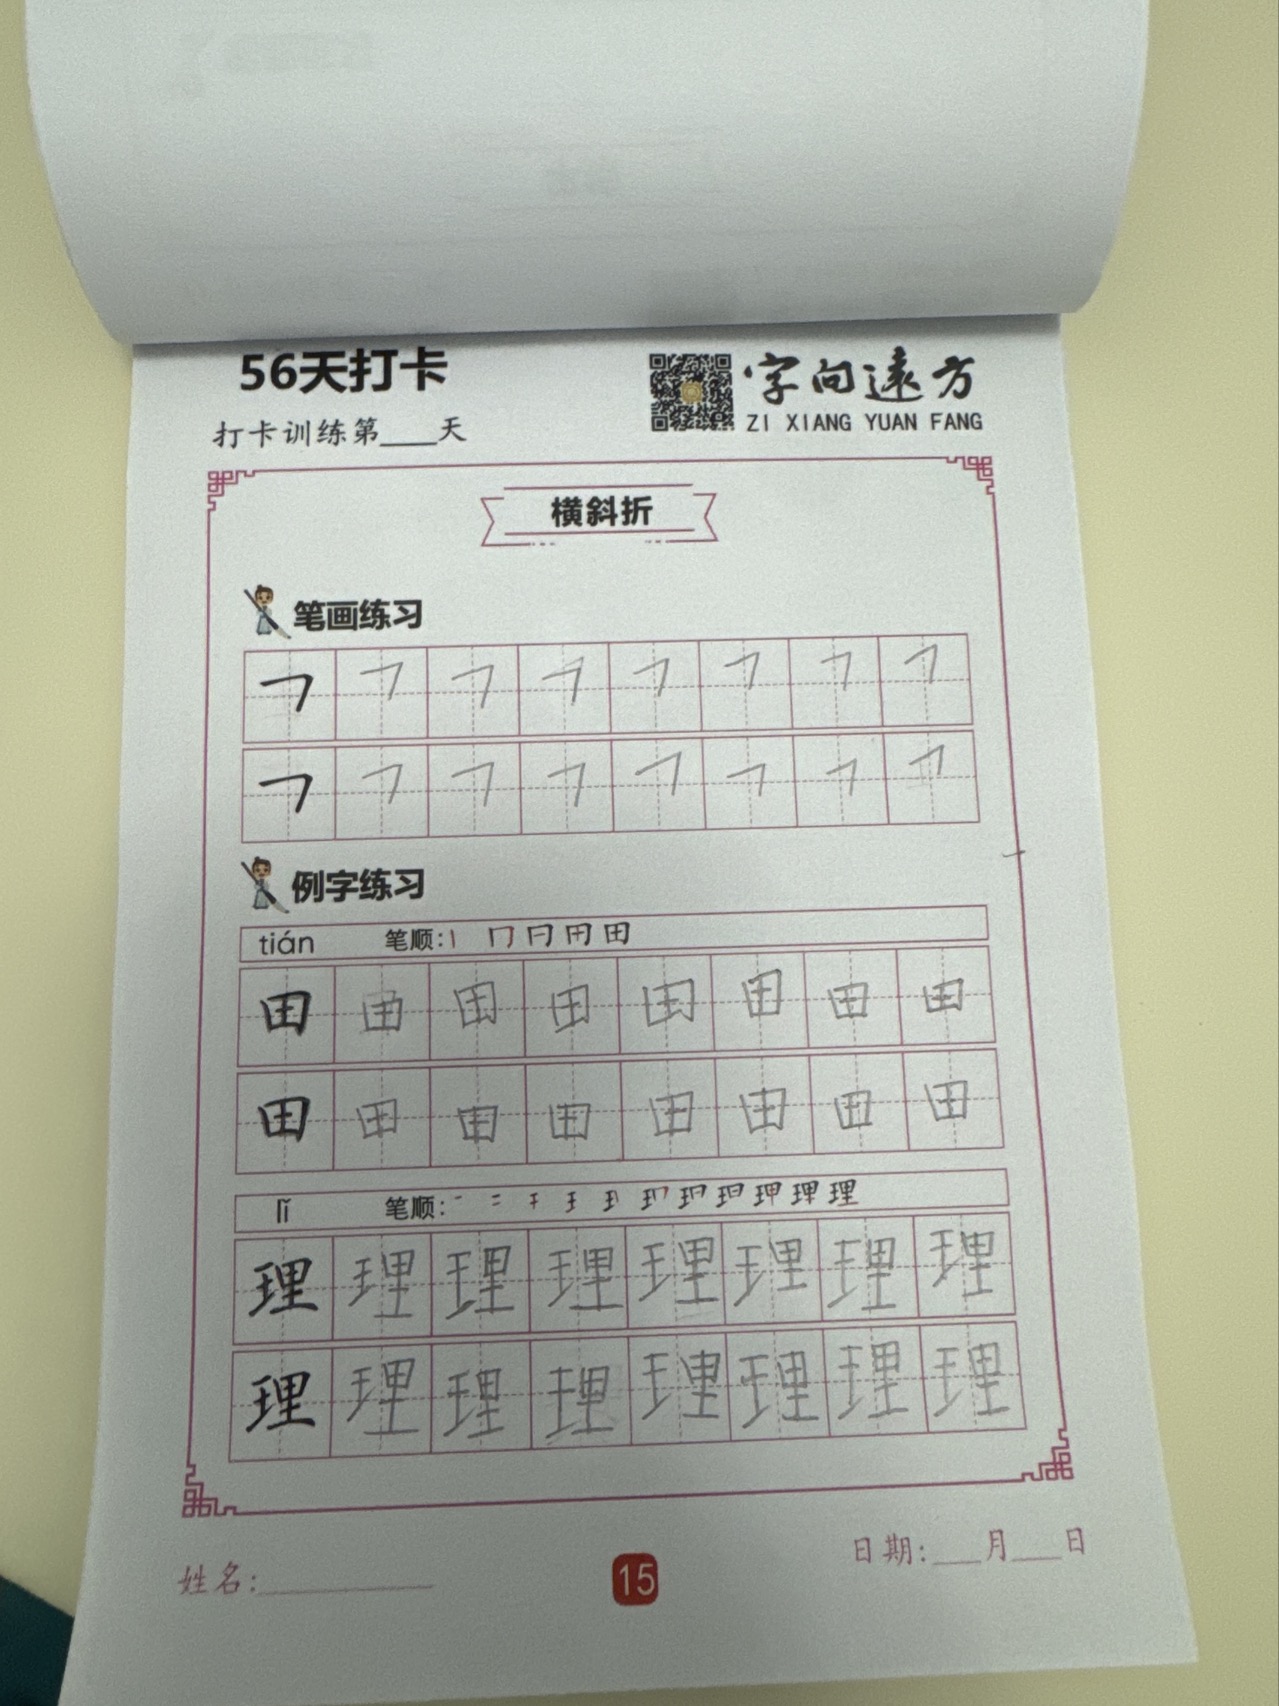 56天打卡
字向远方
打卡训练第____天
ZI XIANG YUAN FANG
横斜折
笔画练习
㇇ ㇇ ㇇ ㇇ ㇇ ㇇ ㇇ ㇇
㇇ ㇇ ㇇ ㇇ ㇇ ㇇ ㇇ ㇇
例字练习
tián 笔顺: 丨 冂 日 用 田
田 田 田 田 田 田 田 田
田 田 田 田 田 田 田 田
lǐ 笔顺: 理
理 理 理 理 理 理 理 理
理 理 理 理 理 理 理 理
日期:___月___日
姓名:__________
15